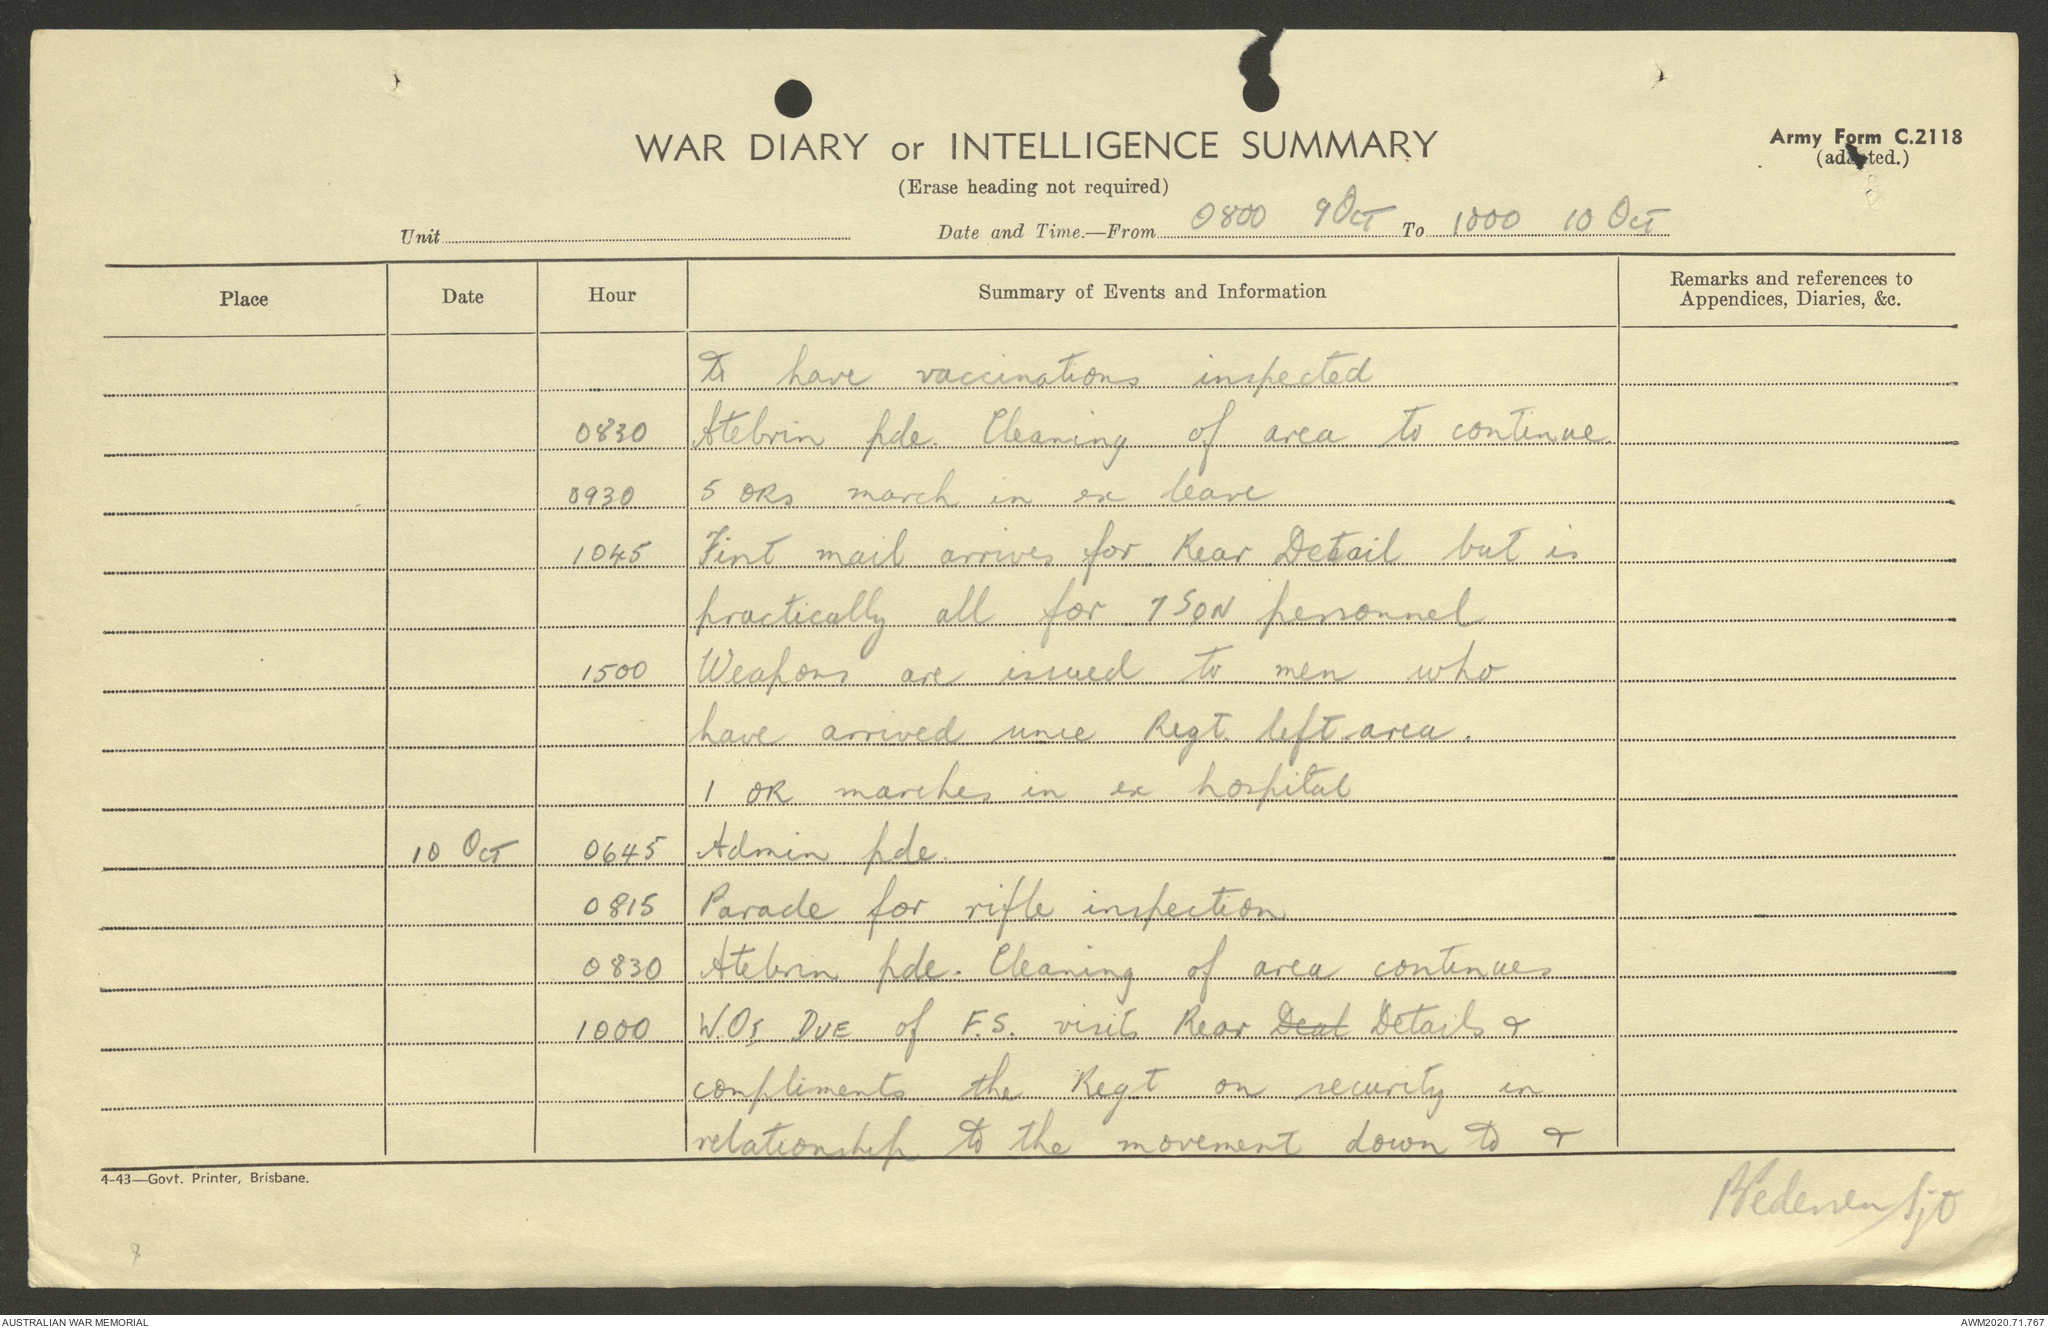 WAR DIARY or INTELLIGENCE SUMMARY
Army Form C.2118
(adapted.)
(Erase heading not required)
Unit Date and Time.—From 0800 9 Oct To 1000 10 Oct
Place Date Hour Summary of Events and Information Remarks and references to Appendices, Diaries, &c.
to have vaccinations inspected
0830 Atebrin pde. Cleaning of area to continue
0930 5 ORs march in ex leave
1045 First mail arrives for Rear Detail but is
practically all for 7 SQN personnel
1500 Weapons are issued to men who
have arrived since Regt. left area.
1 OR marches in ex hospital
10 Oct 0645 Admin pde.
0815 Parade for rifle inspection
0830 Atebrin pde. Cleaning of area continues
1000 W.O. DUE of F.S. visits Rear Deat Details &
compliments the Regt on security in
relationship to the movement down to &
4-43—Govt. Printer, Brisbane.
Sjt
AUSTRALIAN WAR MEMORIAL
AWM2020.71.767